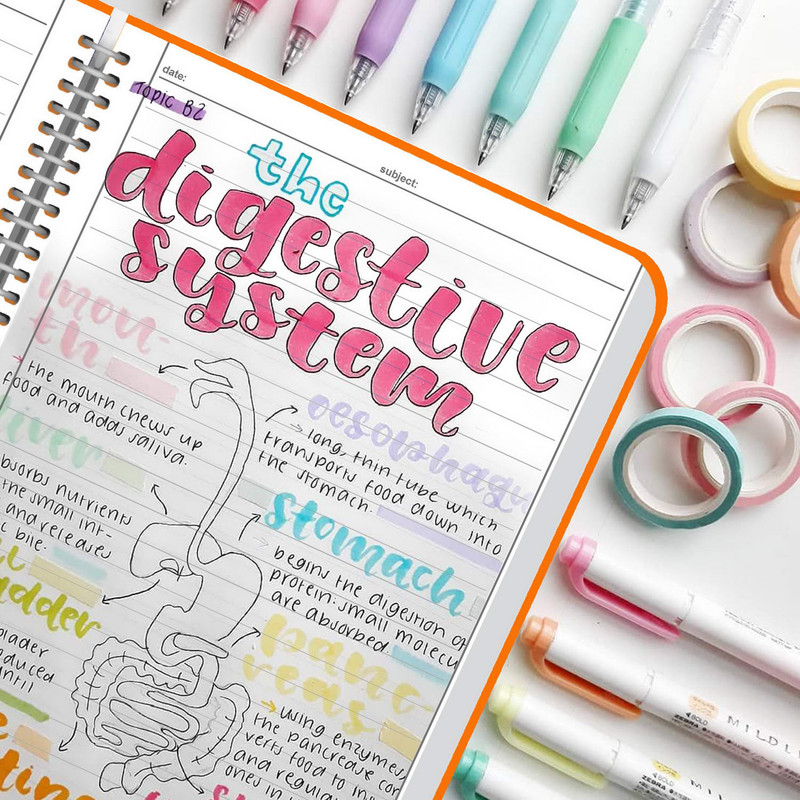 date:
subject:
Topic B2
the
digestive
system
mou-
th
the mouth chews up
food and adds saliva.
oesophagu
long, thin tube which
transports food down into
the stomach.
liver
absorbs nutrients
the small int-
and releases
bile.
stomach
begins the digestion of
protein. small molecu
are absorbed
adder
bladder
until
panc-
reas
using enzymes,
the pancrease con
verts food to in
and regula
ones in
ZEBRA
BOLD
MILDLI
ZEBRA
BOLD